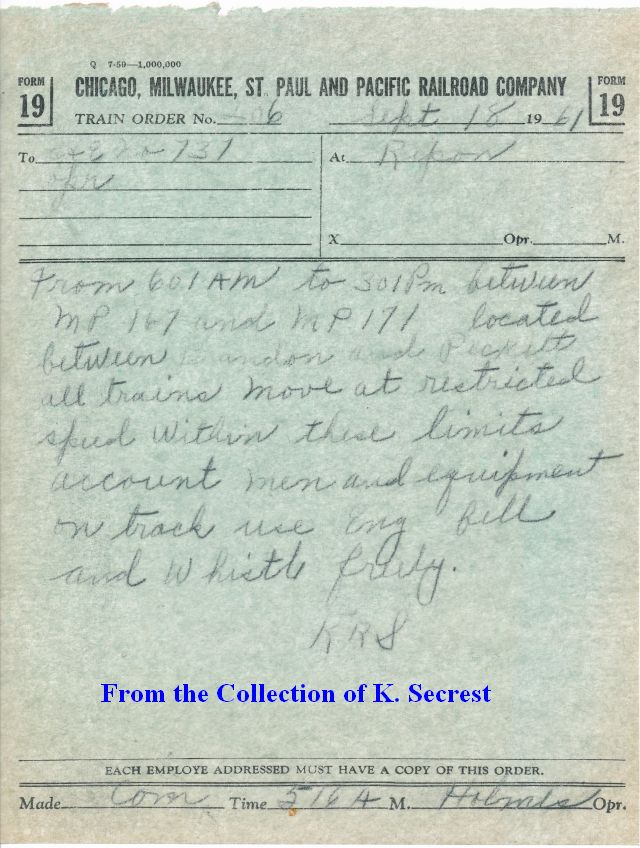 Q 7-59—1,000,000
FORM 19
CHICAGO, MILWAUKEE, ST. PAUL AND PACIFIC RAILROAD COMPANY
FORM 19
TRAIN ORDER No. 06 Sept 18 1961
To 731 At Ripon
opr
X Opr. M.
From 601 AM to 301 Pm between
MP 167 and MP 171 located
between Brandon and Pickett
all trains move at restricted
speed within these limits
account men and equipment
on track use Eng bell
and Whistle freely.
KRS
From the Collection of K. Secrest
EACH EMPLOYE ADDRESSED MUST HAVE A COPY OF THIS ORDER.
Made Com Time 516 A M. Holmes Opr.